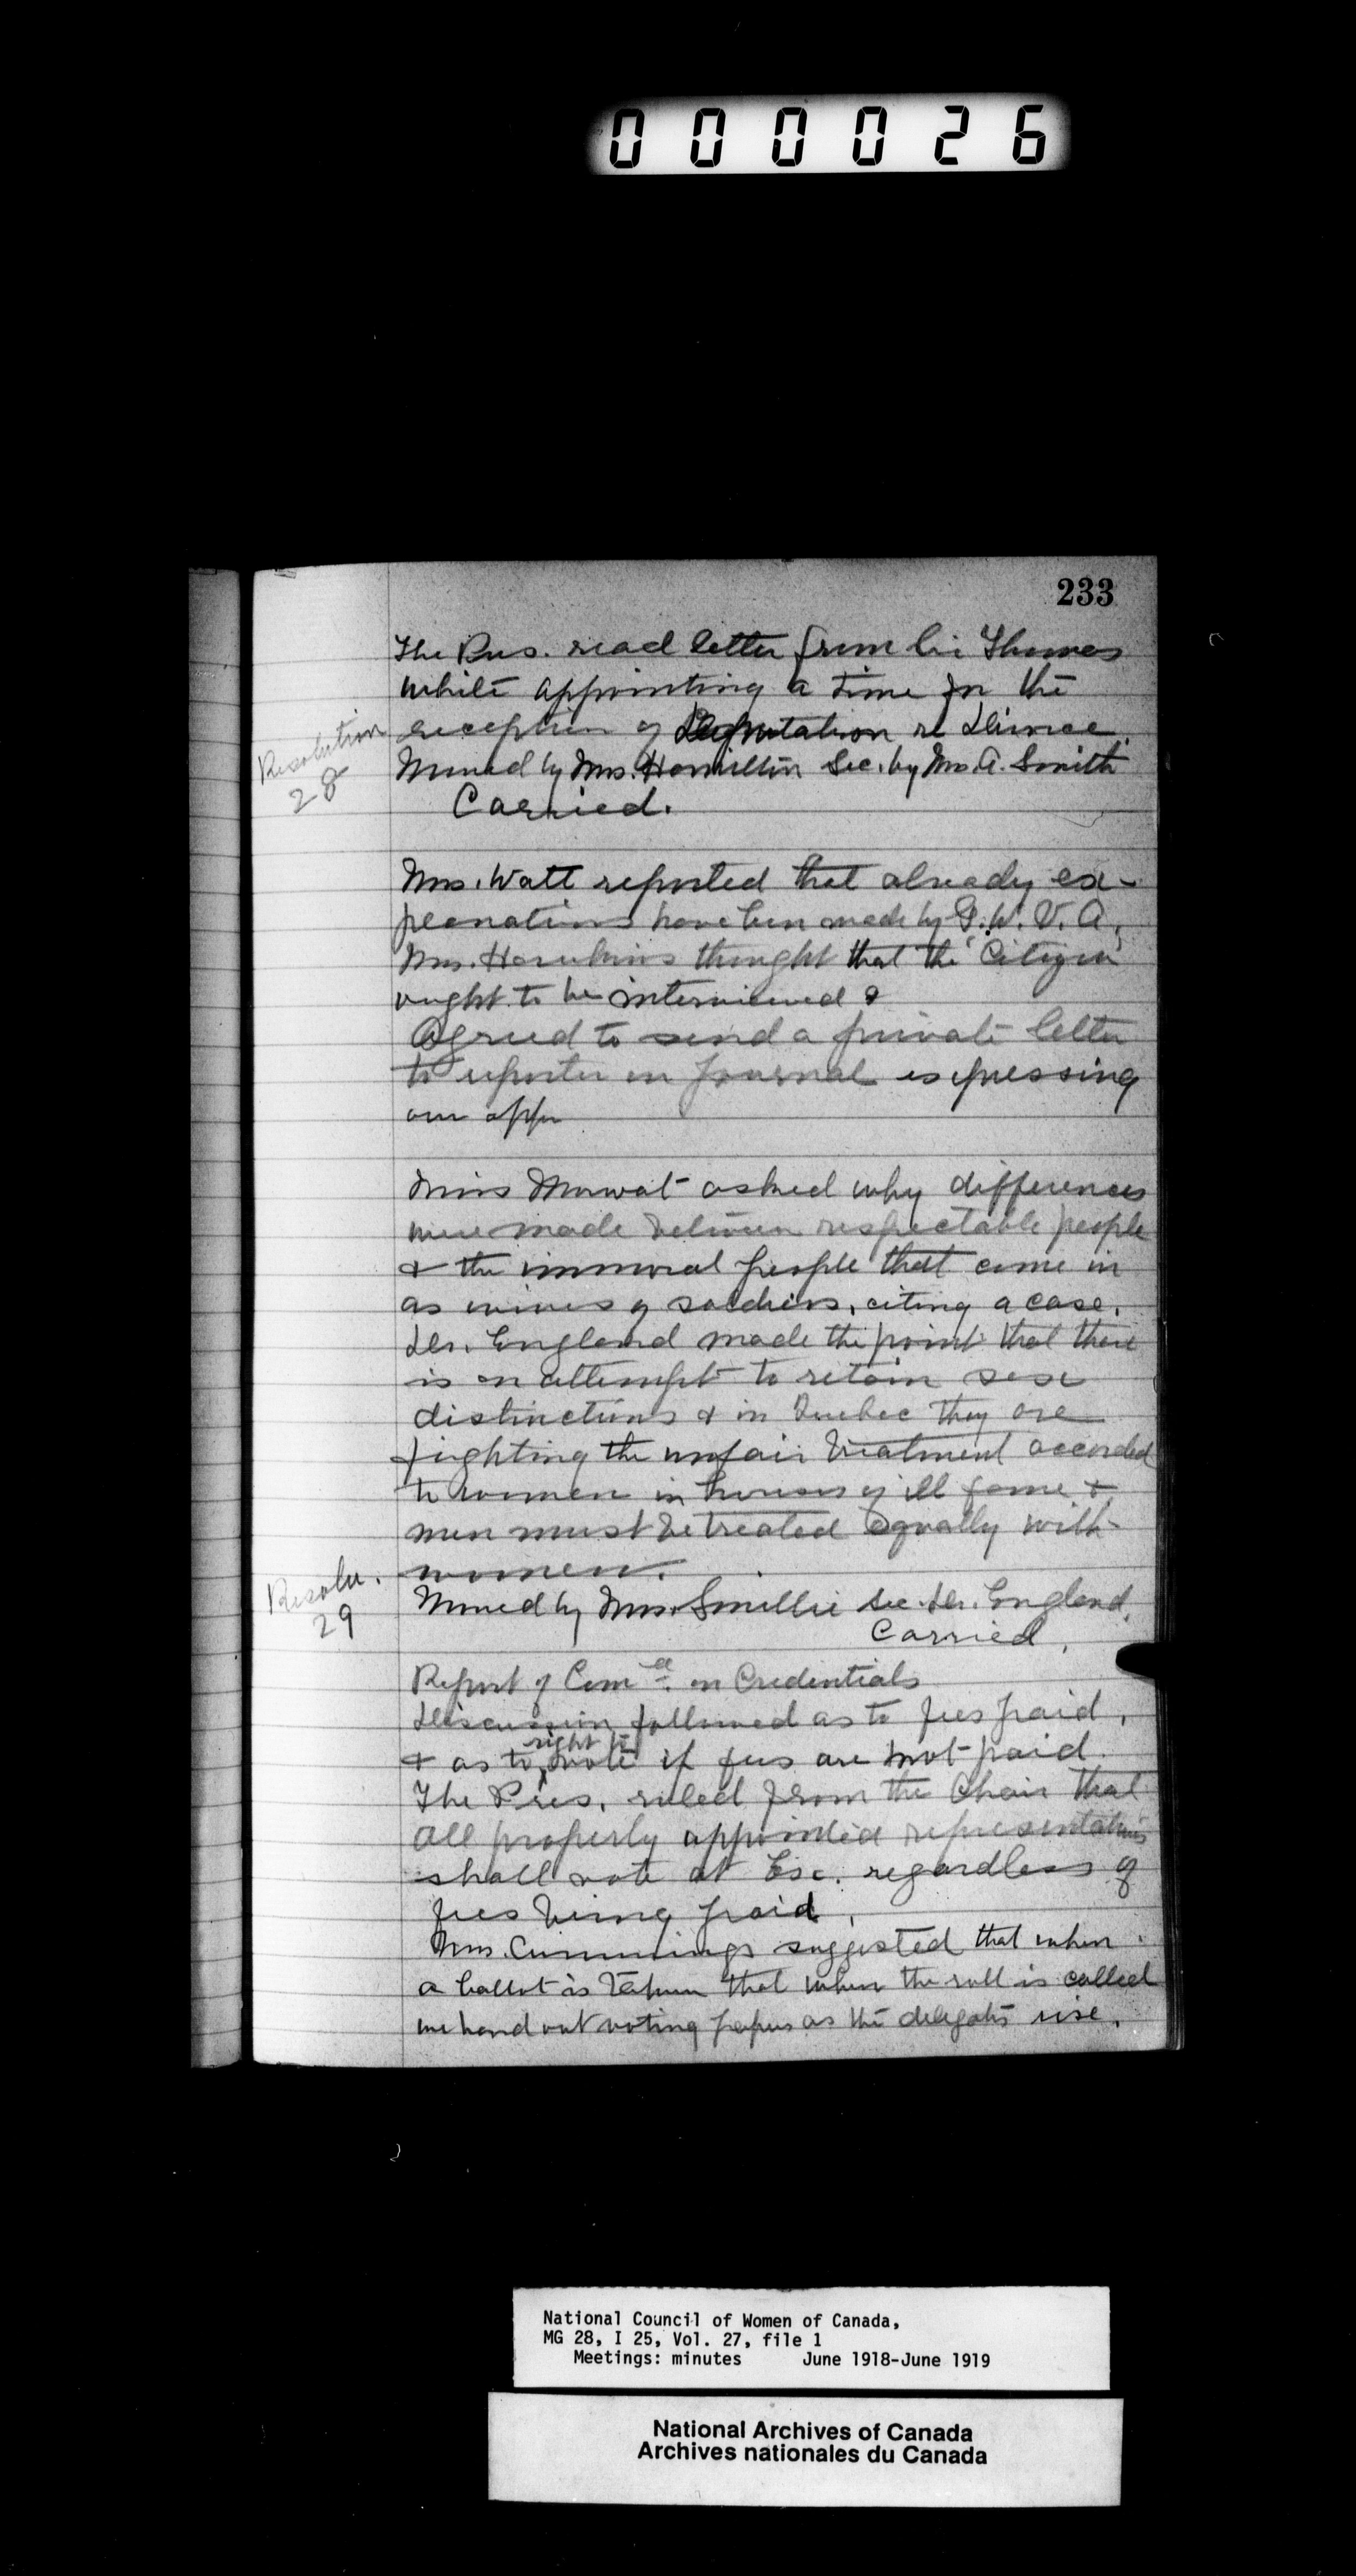 000026
233
The Pres. read letter from Sir Thomas
White appointing a time for the
reception of Deputation re Divorce.
Resolution
28
Moved by Mrs. Hamilton Sec. by Mrs. A. Smith
Carried.
Mrs. Watt reported that already ex-
planations have been made by G. W. V. A.
Mrs. thought that the "Citizen"
ought to be interviewed &
Agreed to send a private letter
to reporter on Journal expressing
our appr
Miss Mowat asked why differences
were made between respectable people
& the immoral people that come in
as wives of soldiers, citing a case.
Dr. England made the point that there
is an attempt to retain sex
distinctions & in Quebec they are
fighting the unfair treatment accorded
to women in houses of ill fame &
men must be treated equally with
women.
Resolu.
29
Moved by Mrs. Smillie Sec. Dr. England,
Carried.
Report of Com on Credentials
Discussion followed as to fees paid,
& as to right to vote if fees are not paid.
The Pres. ruled from the Chair that
all properly appointed representatives
shall vote at Ex. regardless of
fees being paid.
Mrs. Cummings suggested that when
a ballot is taken that when the roll is called
we hand out voting papers as the delegates rise.
National Council of Women of Canada,
MG 28, I 25, Vol. 27, file 1
Meetings: minutes June 1918-June 1919
National Archives of Canada
Archives nationales du Canada